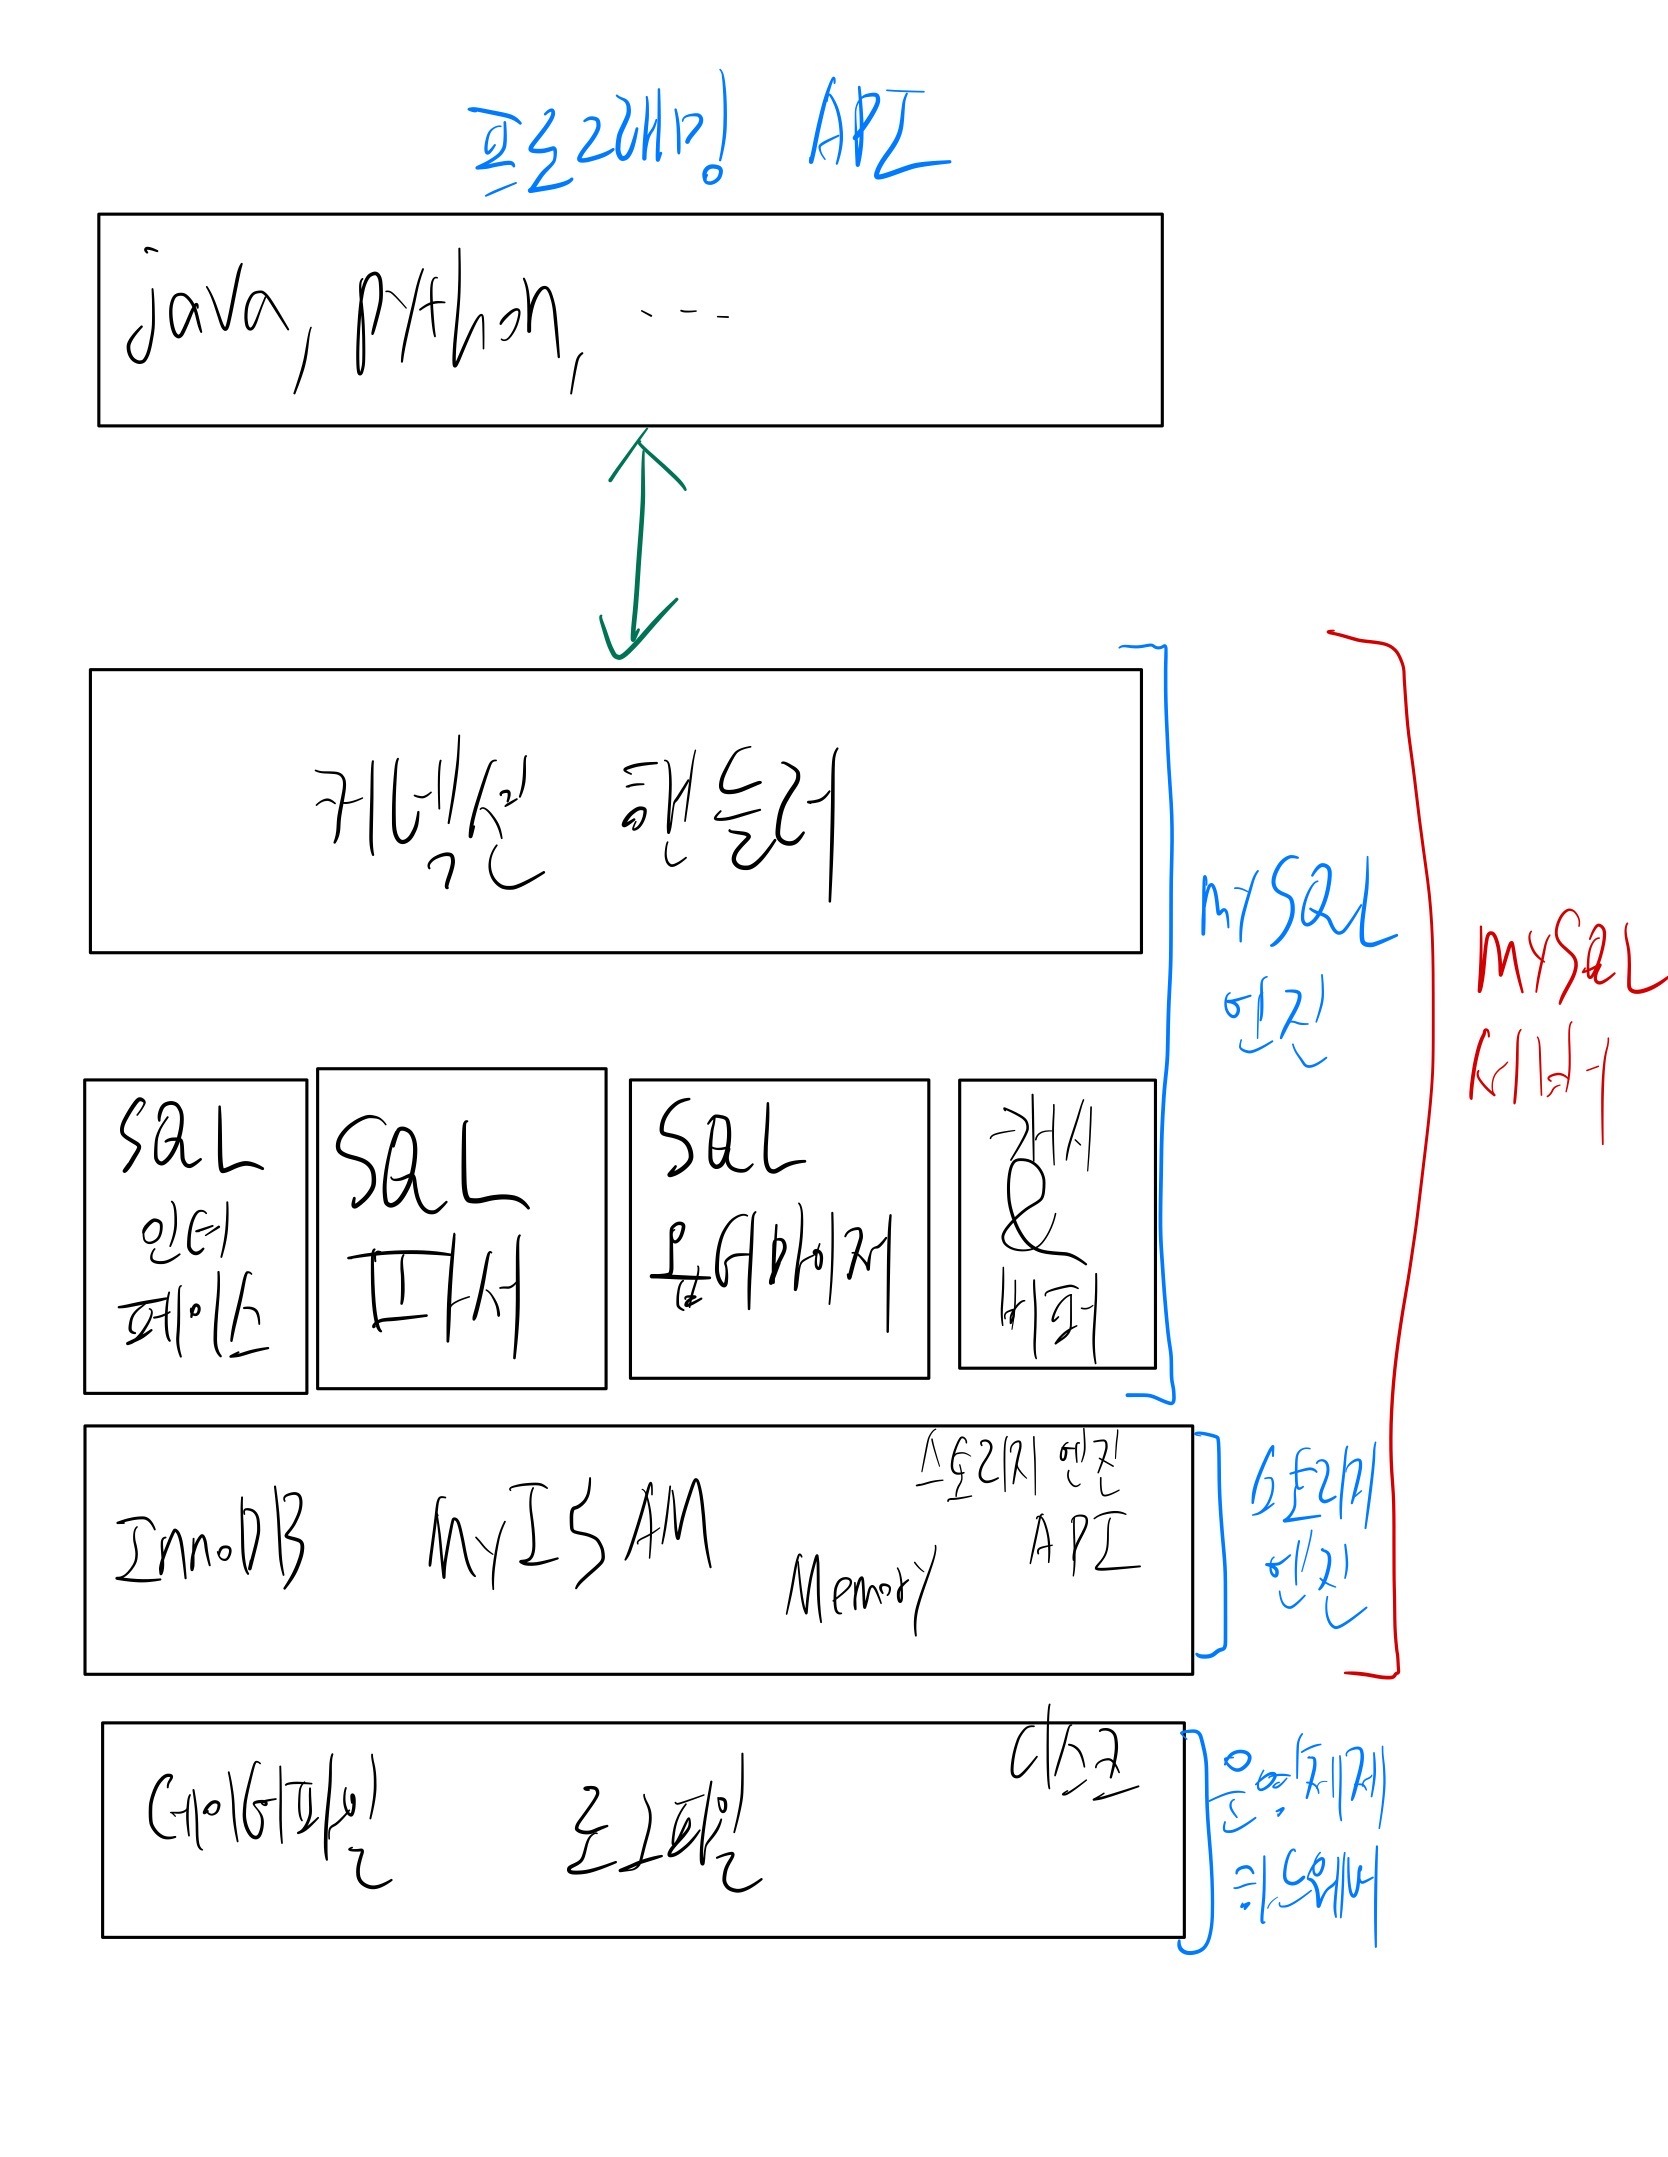 프로그래밍 API
java, python, ...
커넥션 핸들러
MySQL
엔진
MySQL
서버
SQL
인터
페이스
SQL
파서
SQL
옵티마이저
캐시
&
버퍼
InnoDB
MyISAM
Memory
스토리지 엔진
API
스토리지
엔진
데이터파일
로그파일
디스크
운영체제
하드웨어